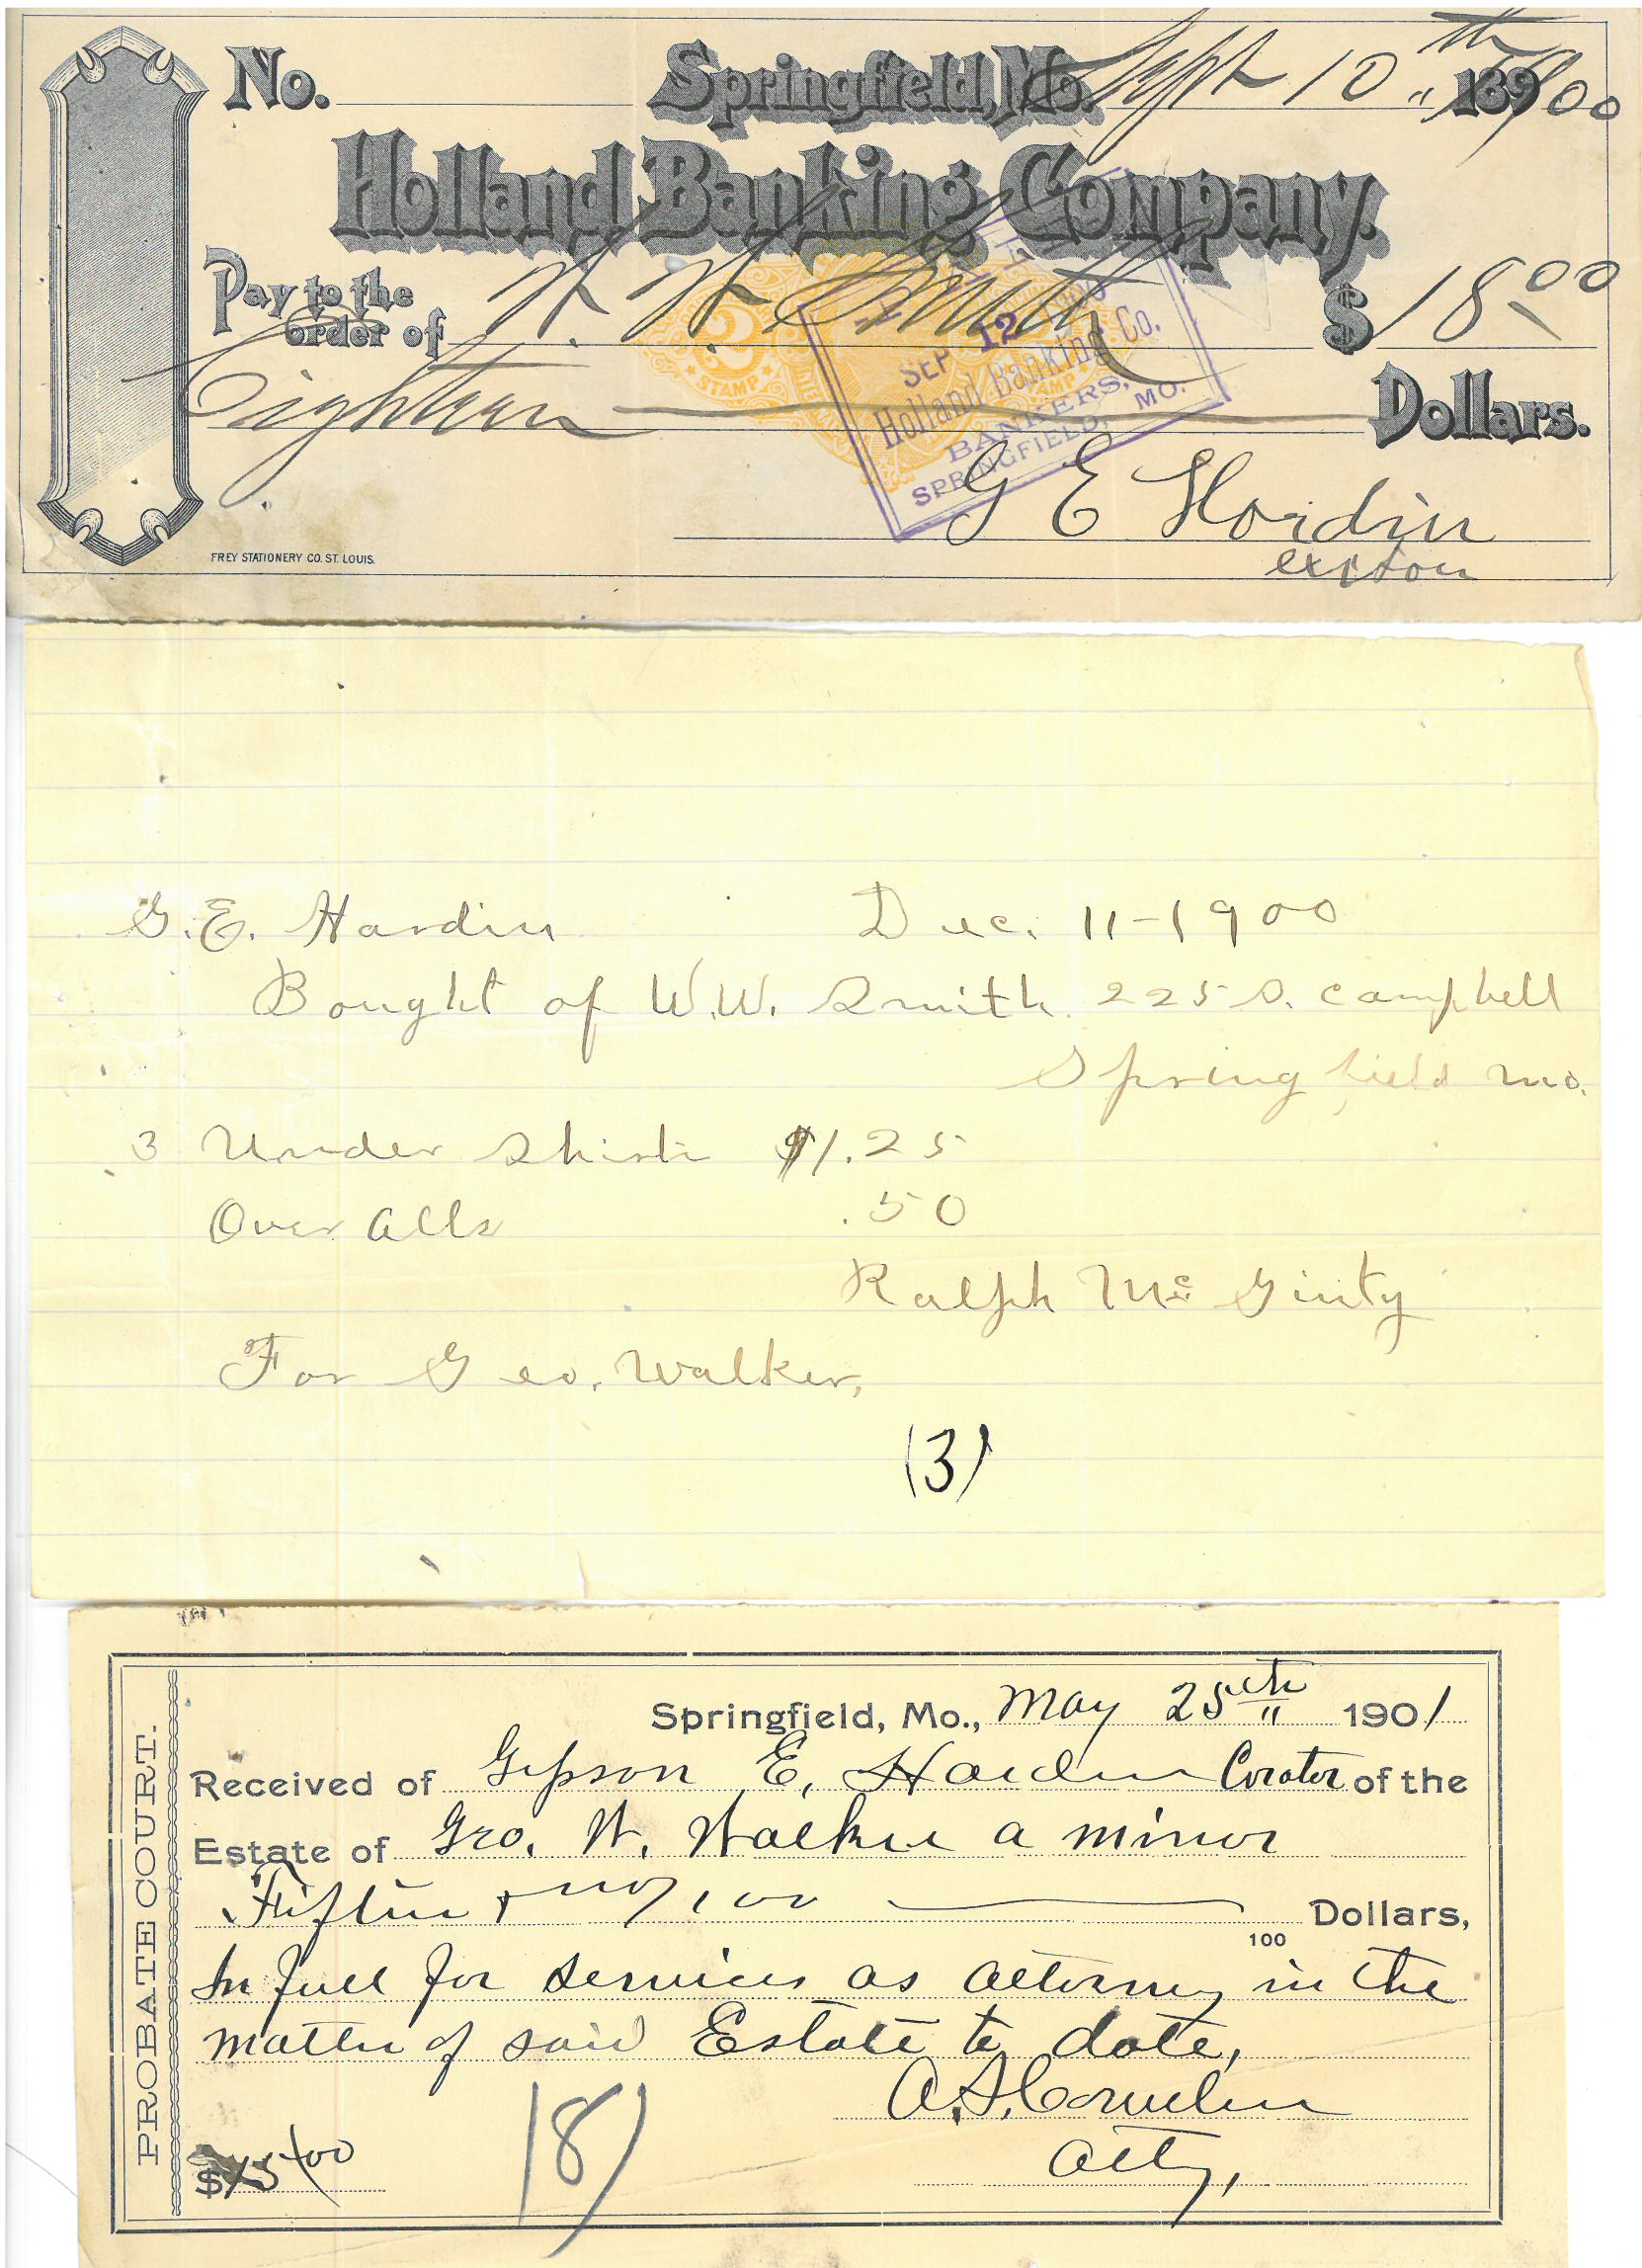 No. Springfield, Mo. Sept 10th 1900
Holland Banking Company.
Pay to the order of W. W. Smith $ 18.00
Eighteen Dollars.
2 STAMP STAMP
SEP 12 1900
Holland Banking Co.
BANKERS,
SPRINGFIELD, MO.
G E Hardin
FREY STATIONERY CO. ST. LOUIS.
G. E. Hardin Dec. 11-1900
Bought of W.W. Smith 225 S. Campbell
Springfield Mo.
3 Under Shirts $1.25
Over Alls .50
Ralph Mc Ginty
For Geo. Walker,
(3)
PROBATE COURT.
Springfield, Mo., May 25th 1901
Received of Gipson E. Hardin Curator of the
Estate of Geo. W. Walker a minor
Fifteen + no/100 100 Dollars,
In full for services as attorney in the
matter of said Estate to date,
Atty,
$15/00
(8)